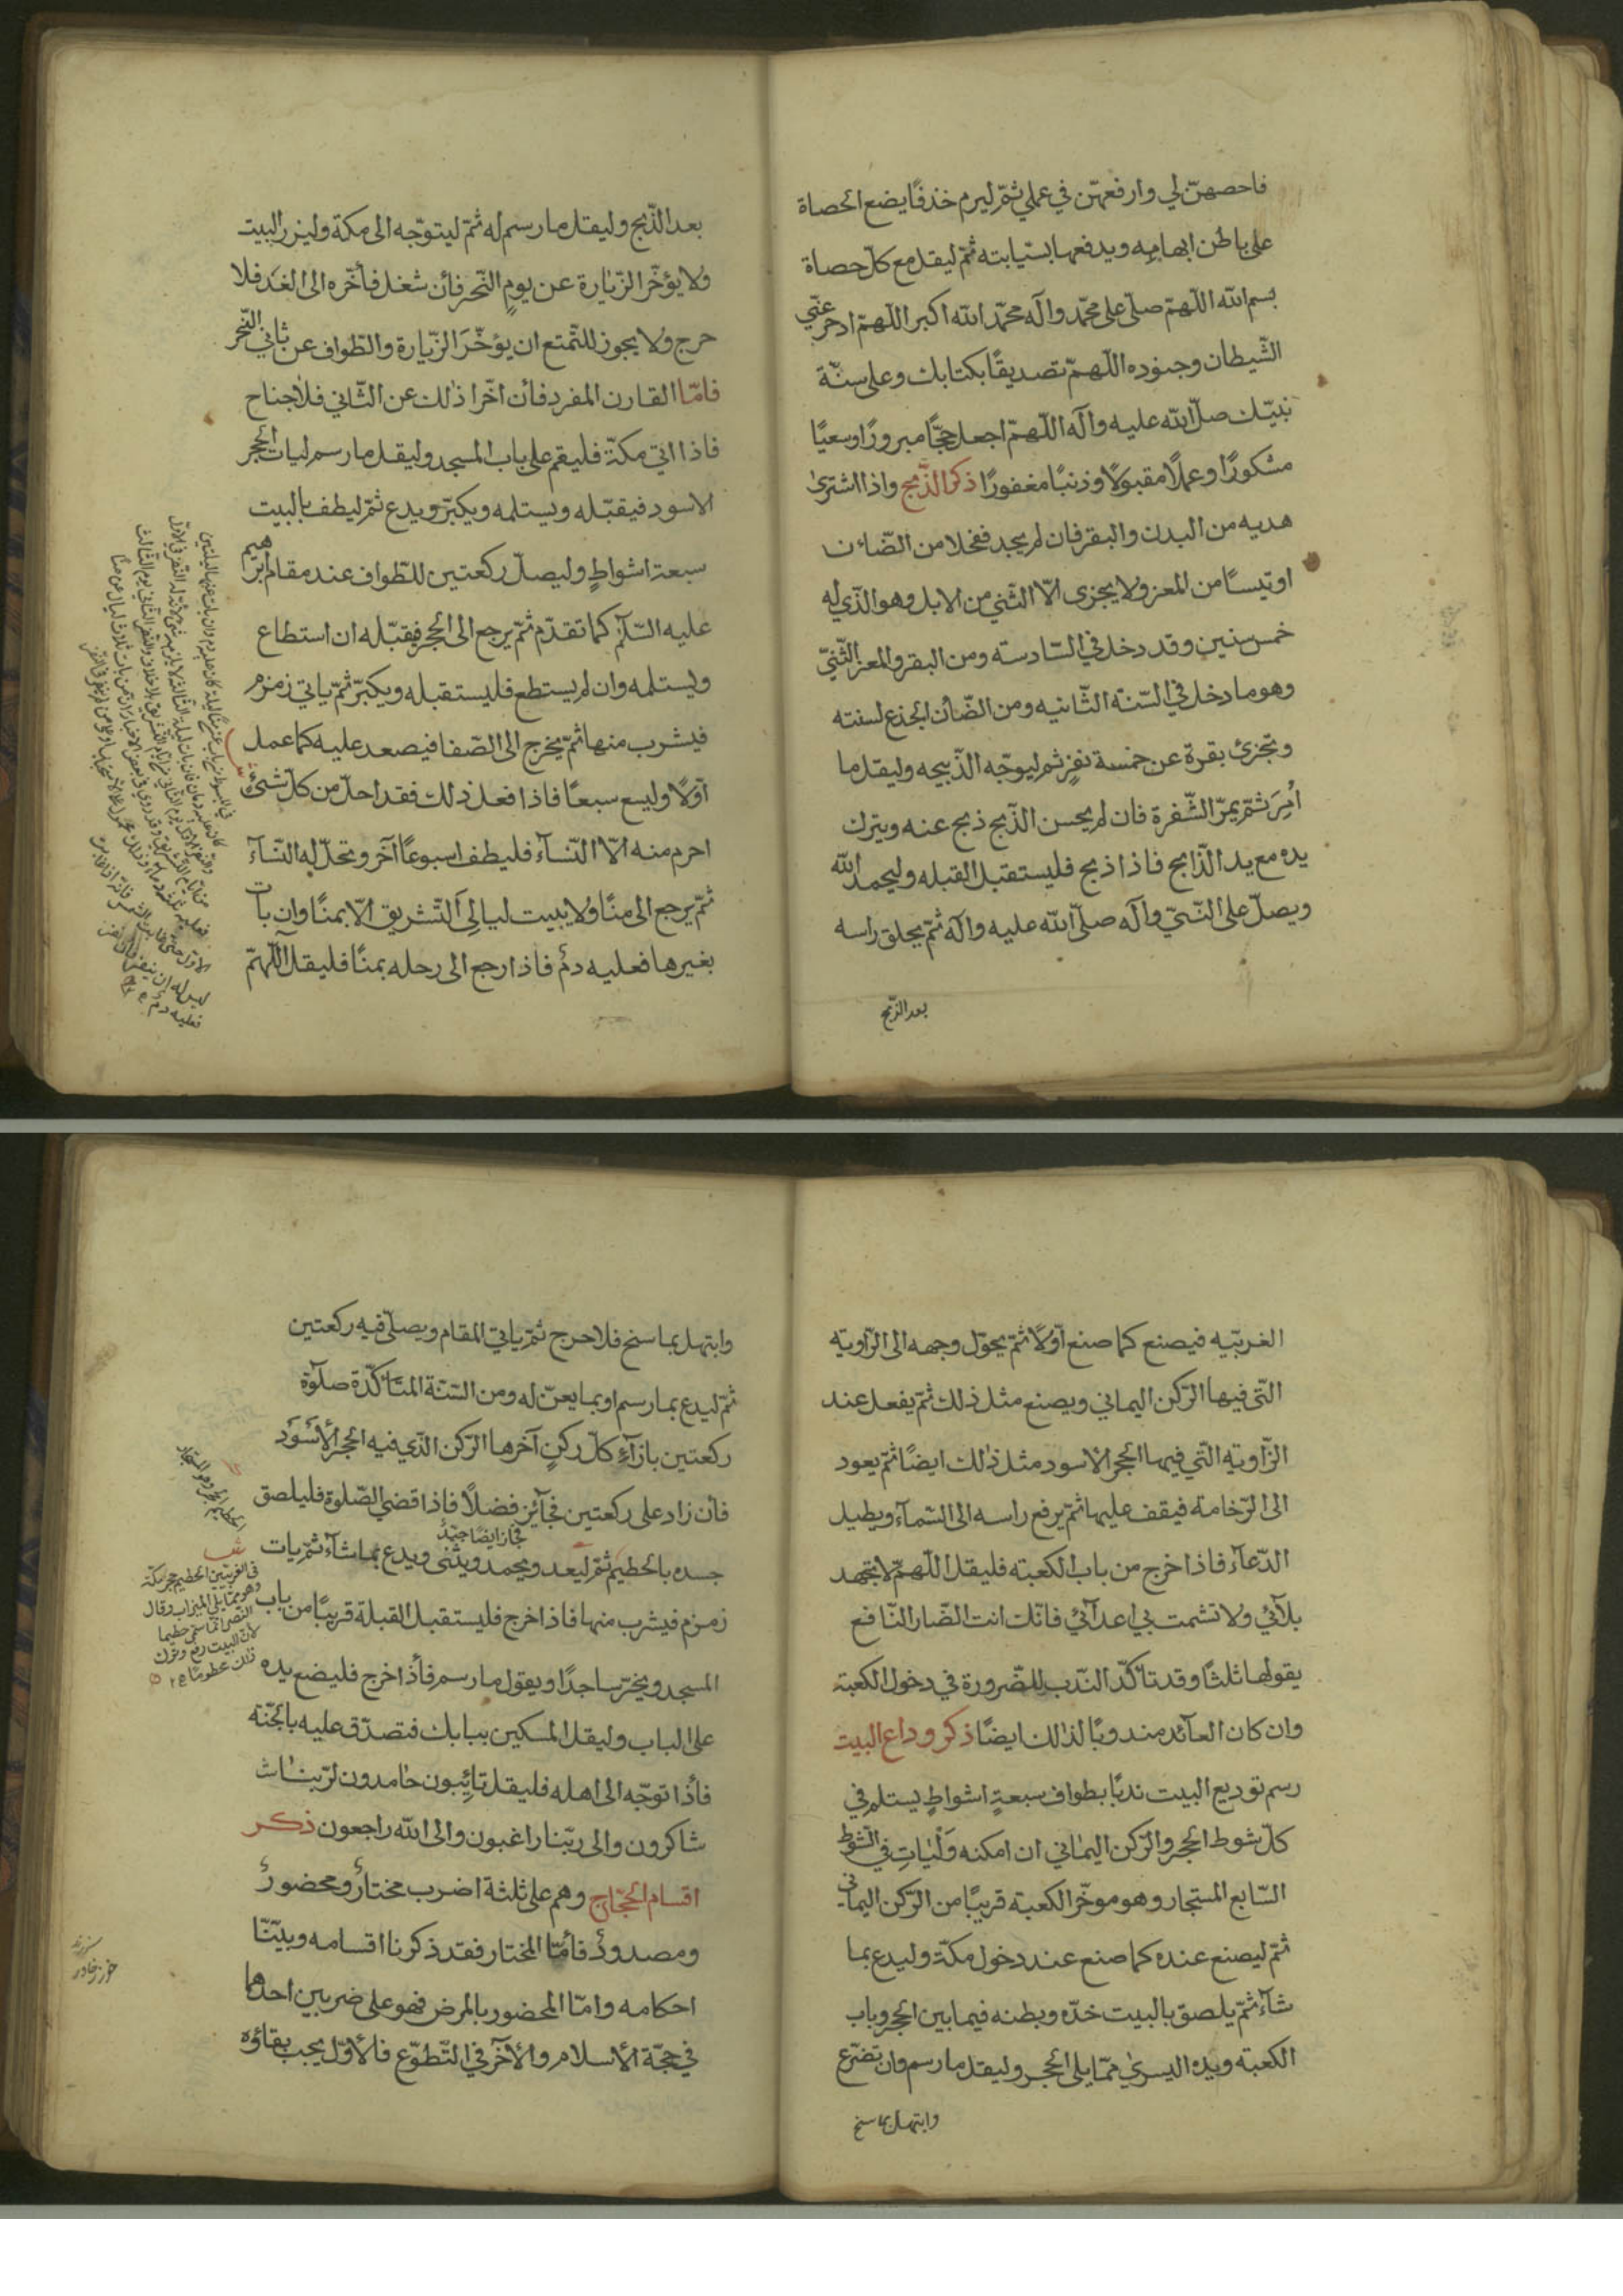 فاحصهنّ لي وارفعهنّ في عملي ثمّ ليرم خذفًا يضع الحصاة
على باطن ابهامه ويدفعها بسبابته ثمّ ليقل مع كلّ حصاة
بسم الله اللّهمّ صلّى على محمّد وآله محمّد الله اكبر اللّهمّ ادحر عنّي
الشّيطان وجنوده اللّهمّ تصديقًا بكتابك وعلى سنّة
نبيّك صلّ الله عليه وآله اللّهمّ اجعل حجًّا مبرورًا وسعيًا
مشكورًا وعملًا مقبولًا وذنبًا مغفورًا ذكر الذّبح واذا اشترى
هديه من البدن والبقر فان لم يجد فحلا من الضّان
او تيسًا من المعز ولا يجزى الّا الثّني من الابل وهو الّذي له
خمس سنين وقد دخل في السّادسة ومن البقر والمعز الثّنيّ
وهو ما دخل في السّنة الثّانيه ومن الضّان الجذع لسنته
وتجزئ بقرة عن خمسة نفرٍ ثم ليوجّه الذّبيحه وليقل ما
اُمِرَ ثمّ يمرّ الشّفرة فان لم يحسن الذّبح ذبح عنه ويترك
يده مع يد الذّابح فاذا ذبح فليستقبل القبله وليحمد الله
ويصلّ على النّبيّ وآله صلّى الله عليه وآله ثمّ يحلق راسه
بعد الذّبح
بعد الذّبح وليقل ما رسم له ثمّ ليتوجّه الى مكة وليزر البيت
ولا يؤخّر الزّيارة عن يوم النّحر فأن شغل فأخّره الى الغد فلا
حرج ولا يجوز للتّمتع ان يؤخّرَ الزّيارة والطّواف عن ثاني النّحر
فامّا القارن المفرد فأن اخّرا ذلك عن الثّاني فلا جناح
فاذا اتي مكّة فليقم على باب المسجد وليقل ما رسم ليات الحجر
الاسود فيقبّله ويستلمه ويكبّر ويدع ثمّ ليطف بالبيت
سبعة اشواطٍ وليصلّ ركعتين للطّواف عند مقام ابراهيم
عليه السّلام كما تقدّم ثمّ يرجع الى الحجر فيقبّله ان استطاع
ويستلمه وان لم يستطع فليستقبله ويكبّر ثمّ ياتي زمزم
فيشرب منها ثمّ يخرج الى الصّفا فيصعد عليه كما عمل
اوّلًا وليسع سبعًا فاذا فعل ذلك فقد احلّ من كلّ شئ
احرم منه الّا النّسآء فليطف اسبوعًا آخر وتحلّ له النّسآء
ثمّ يرجع الى منًا ولا يبيت ليالي التّشريق الّا بمنًا وان بات
بغيرها فعليه دمٌ فاذا رجع الى رحله بمنًا فليقل اللّهمّ
الغربيّه فيصنع كما صنع اوّلًا ثمّ يحوّل وجهه الى الزّاويه
الّتى فيها الرّكن اليماني ويصنع مثل ذلك ثمّ يفعل عند
الزّاويه الّتي فيها الحجر الاسود مثل ذلك ايضًا ثمّ يعود
الى الرّخامة فيقف عليها ثمّ يرفع راسه الى السّمآء ويطيل
الدّعآء فاذا خرج من باب الكعبته فليقل اللّهمّ لا تجهد
بلآئي ولا تشمت بي اعدآئي فانّك انت الضّار النّافع
يقولها ثلثًا وقد تأكّد النّدب للضّرورة في دخول الكعبة
وان كان العآئد مندوبًا لذلك ايضًا ذكر وداع البيت
رسم توديع البيت ندبًا بطواف سبعة اشواطٍ يستلم في
كلّ شوط الحجر والرّكن اليماني ان امكنه وَلْيَاتِ في الشّوط
السّابع المستجار وهو موخّر الكعبة قريبًا من الرّكن اليماني
ثمّ ليصنع عنده كما صنع عند دخول مكّة وليدع بما
شآء ثمّ يلصق بالبيت خدّه وبطنه فيما بين الحجر وباب
الكعبته ويده اليسرى ممّا يلى الحجر وليقل ما رسم وان تضرّع
وابتهل بما سنح
وابتهل بما سنح فلا حرج ثمّ ياتي المقام ويصلّى فيه ركعتين
ثمّ ليدع بما رسم او بما يعنّ له ومن السّنّة المتأكّدة صلوة
ركعتين بازآء كلّ ركنٍ آخرها الرّكن الّذي فيه الحجر الأسْوَد
فأن زاد على ركعتين فجآئز فضلًا فاذا قضي الصّلوة فليلصق
فجاز ايضًا جيّدٌ
جسده بالحطيم ثمّ ليعد ويحمد ويثنى ويدع بما شآء ثمّ يات
زمزم فيشرب منها فاذا خرج فليستقبل القبلة قريبًا من باب
المسجد ويخرّ ساجدًا ويقول ما رسم فأذا خرج فليضع يده
على الباب وليقل المسكين ببابك فتصدّق عليه بالجنّة
فأذا توجّه الى اهله فليقل تائِبون حامدون لربّنا
شاكرون والى ربّنا راغبون والى الله راجعون ذكر
اقسام الحجّاج وهم على ثلثة اضرب مختارٌ ومحضورٌ
ومصدودٌ فأمّا المختار فقد ذكرنا اقسامه وبيّنّا
احكامه وامّا المحضور بالمرض فهو على ضربين احدها
في حجّة الأسلام والأخر في التّطوّع فالأوّل يجب بقاؤه
في الغريبين الحطيم حجر مكّة
وهو ممّا يلي الميزاب وقال
النضر انّما سمّي حطيما
لأنّ البيت رفع وترك
ذلك محطومًا